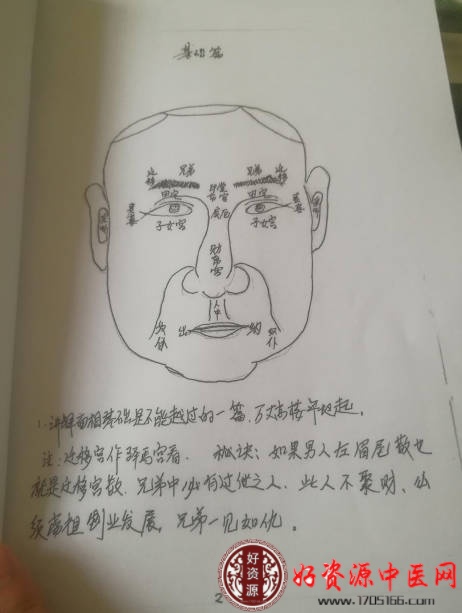 基础篇
迁移 兄弟 兄弟 迁移
田宅 印堂 命宫 田宅
疾厄
子女宫 子女宫
财帛宫
人中
奴仆 出 纳 奴仆
1.讲解面相基础是不能越过的一篇、万丈高楼平地起。
注:迁移宫作驿马宫看. 秘诀:如果男人左眉尾散也
就是迁移宫散、兄弟中必有过世之人、此人不聚财、
离祖 创业发展、兄弟一见如仇。
2
好资源
好资源中医网
www.1705166.com